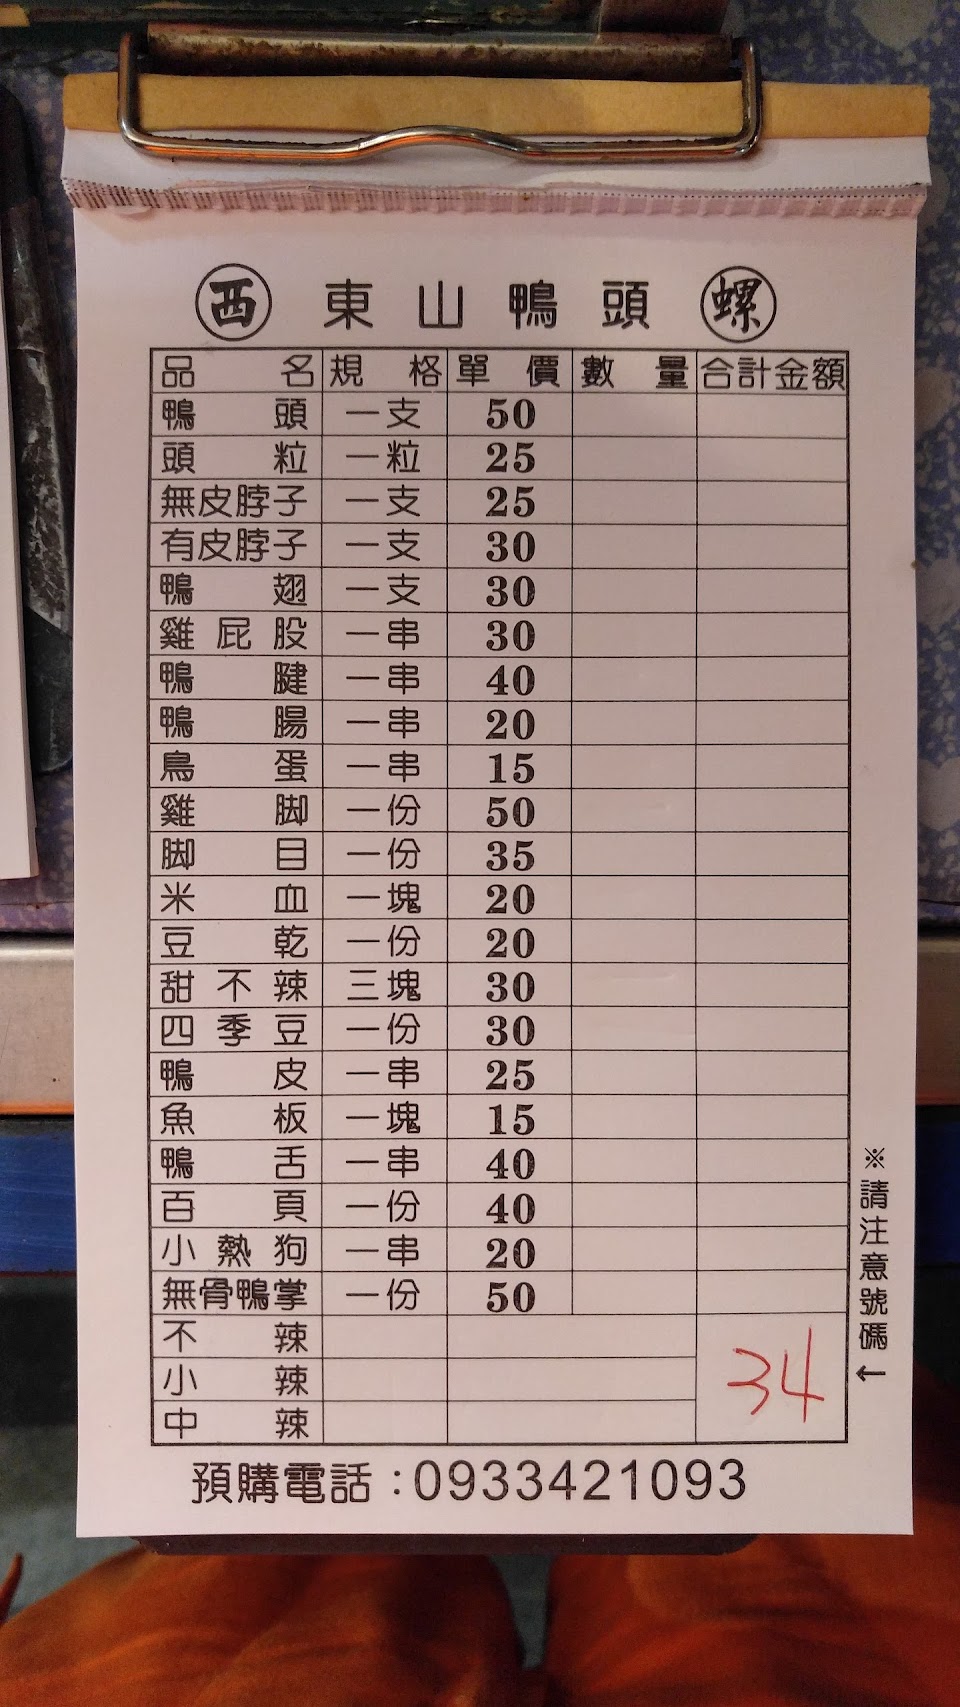 西 東山鴨頭 螺
品名 規格 單價 數量 合計金額
鴨頭 一支 50
頭粒 一粒 25
無皮脖子 一支 25
有皮脖子 一支 30
鴨翅 一支 30
雞屁股 一串 30
鴨腱 一串 40
鴨腸 一串 20
鳥蛋 一串 15
雞脚 一份 50
脚目 一份 35
米血 一塊 20
豆乾 一份 20
甜不辣 三塊 30
四季豆 一份 30
鴨皮 一串 25
魚板 一塊 15
鴨舌 一串 40
百頁 一份 40
小熱狗 一串 20
無骨鴨掌 一份 50
不辣
小辣
中辣
34
※請注意號碼←
預購電話:0933421093